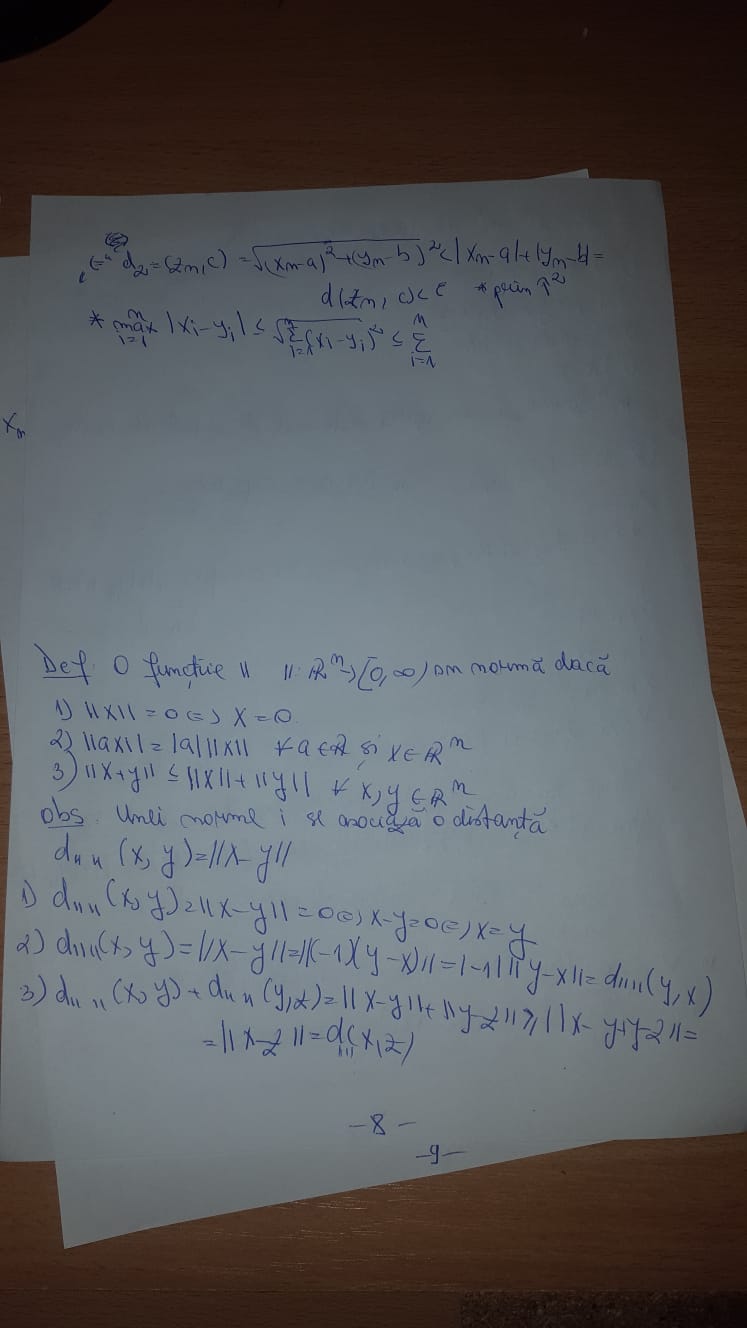 „⇐" d₂ = (zₙ, c) = √(xₙ-a)² + (yₙ-b)² < |xₙ-a| + |yₙ-b| =
d(zₙ, c) < ε * prin ↑²
* max_{i=1}^{n} |xᵢ-yᵢ| ≤ √Σ_{i=1}^{n} (xᵢ-yᵢ)² ≤ Σ_{i=1}^{n}
xₙ
Def. O funcție || ||: ℝⁿ → [0, ∞) sm normă dacă
1) ||x|| = 0 (=) x = 0
2) ||ax|| = |a| ||x|| ∀ a ∈ ℝ și x ∈ ℝⁿ
3) ||x+y|| ≤ ||x|| + ||y|| ∀ x, y ∈ ℝⁿ
Obs. Unei norme i se asociază o distanță
d|| || (x, y) = ||x-y||
1) d|| || (x, y) = ||x-y|| = 0 (=) x-y = 0 (=) x = y
2) d|| || (x, y) = ||x-y|| = ||(-1)(y-x)|| = |-1| ||y-x|| = d|| || (y, x)
3) d|| || (x, y) + d|| || (y, z) = ||x-y|| + ||y-z|| ≥ ||x-y+y-z|| =
= ||x-z|| = d|| || (x, z)
-8-
-9-